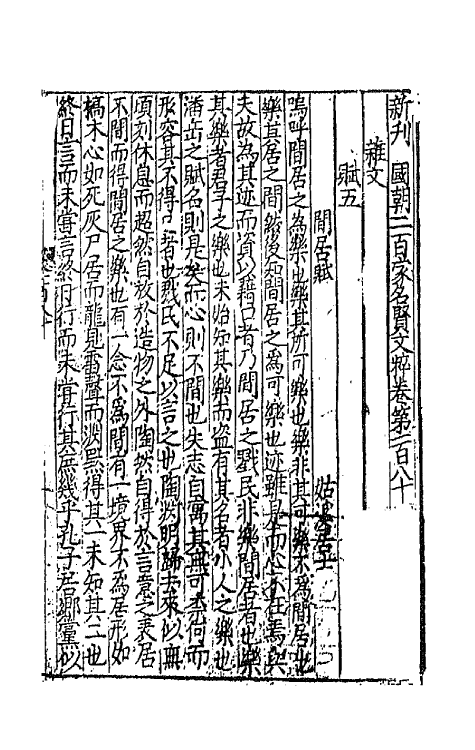 新刊國朝二百家名賢文粹卷第一百八十
雜文
賦五
閒居賦 姑溪居士
嗚呼閒居之為樂也樂其所可樂也樂非其可樂不為閒居也
樂其居之間然後知閒居之為可樂也迹雖是而心不在焉與
夫故為其迹而資以藉口者乃閒居之戮民非樂閒居者也樂
其樂者君子之樂也未始知其樂而盜有其名者小人之樂也
潘岳之賦名則是矣而心則不閒也失志自寓其無可柰何而
形容其不得已者也戮民不足以言之也陶淵明歸去來似無
頃刻休息而超然自放於造物之外陶然自得於言意之表居
不閒而得閒居之樂也有一念不為閒有一境界不為居形如
槁木心如死灰尸居而龍見雷聲而淵黙得其一未知其二也
終日言而未嘗言終日行而未嘗行其庶幾乎孔子居鄉黨似